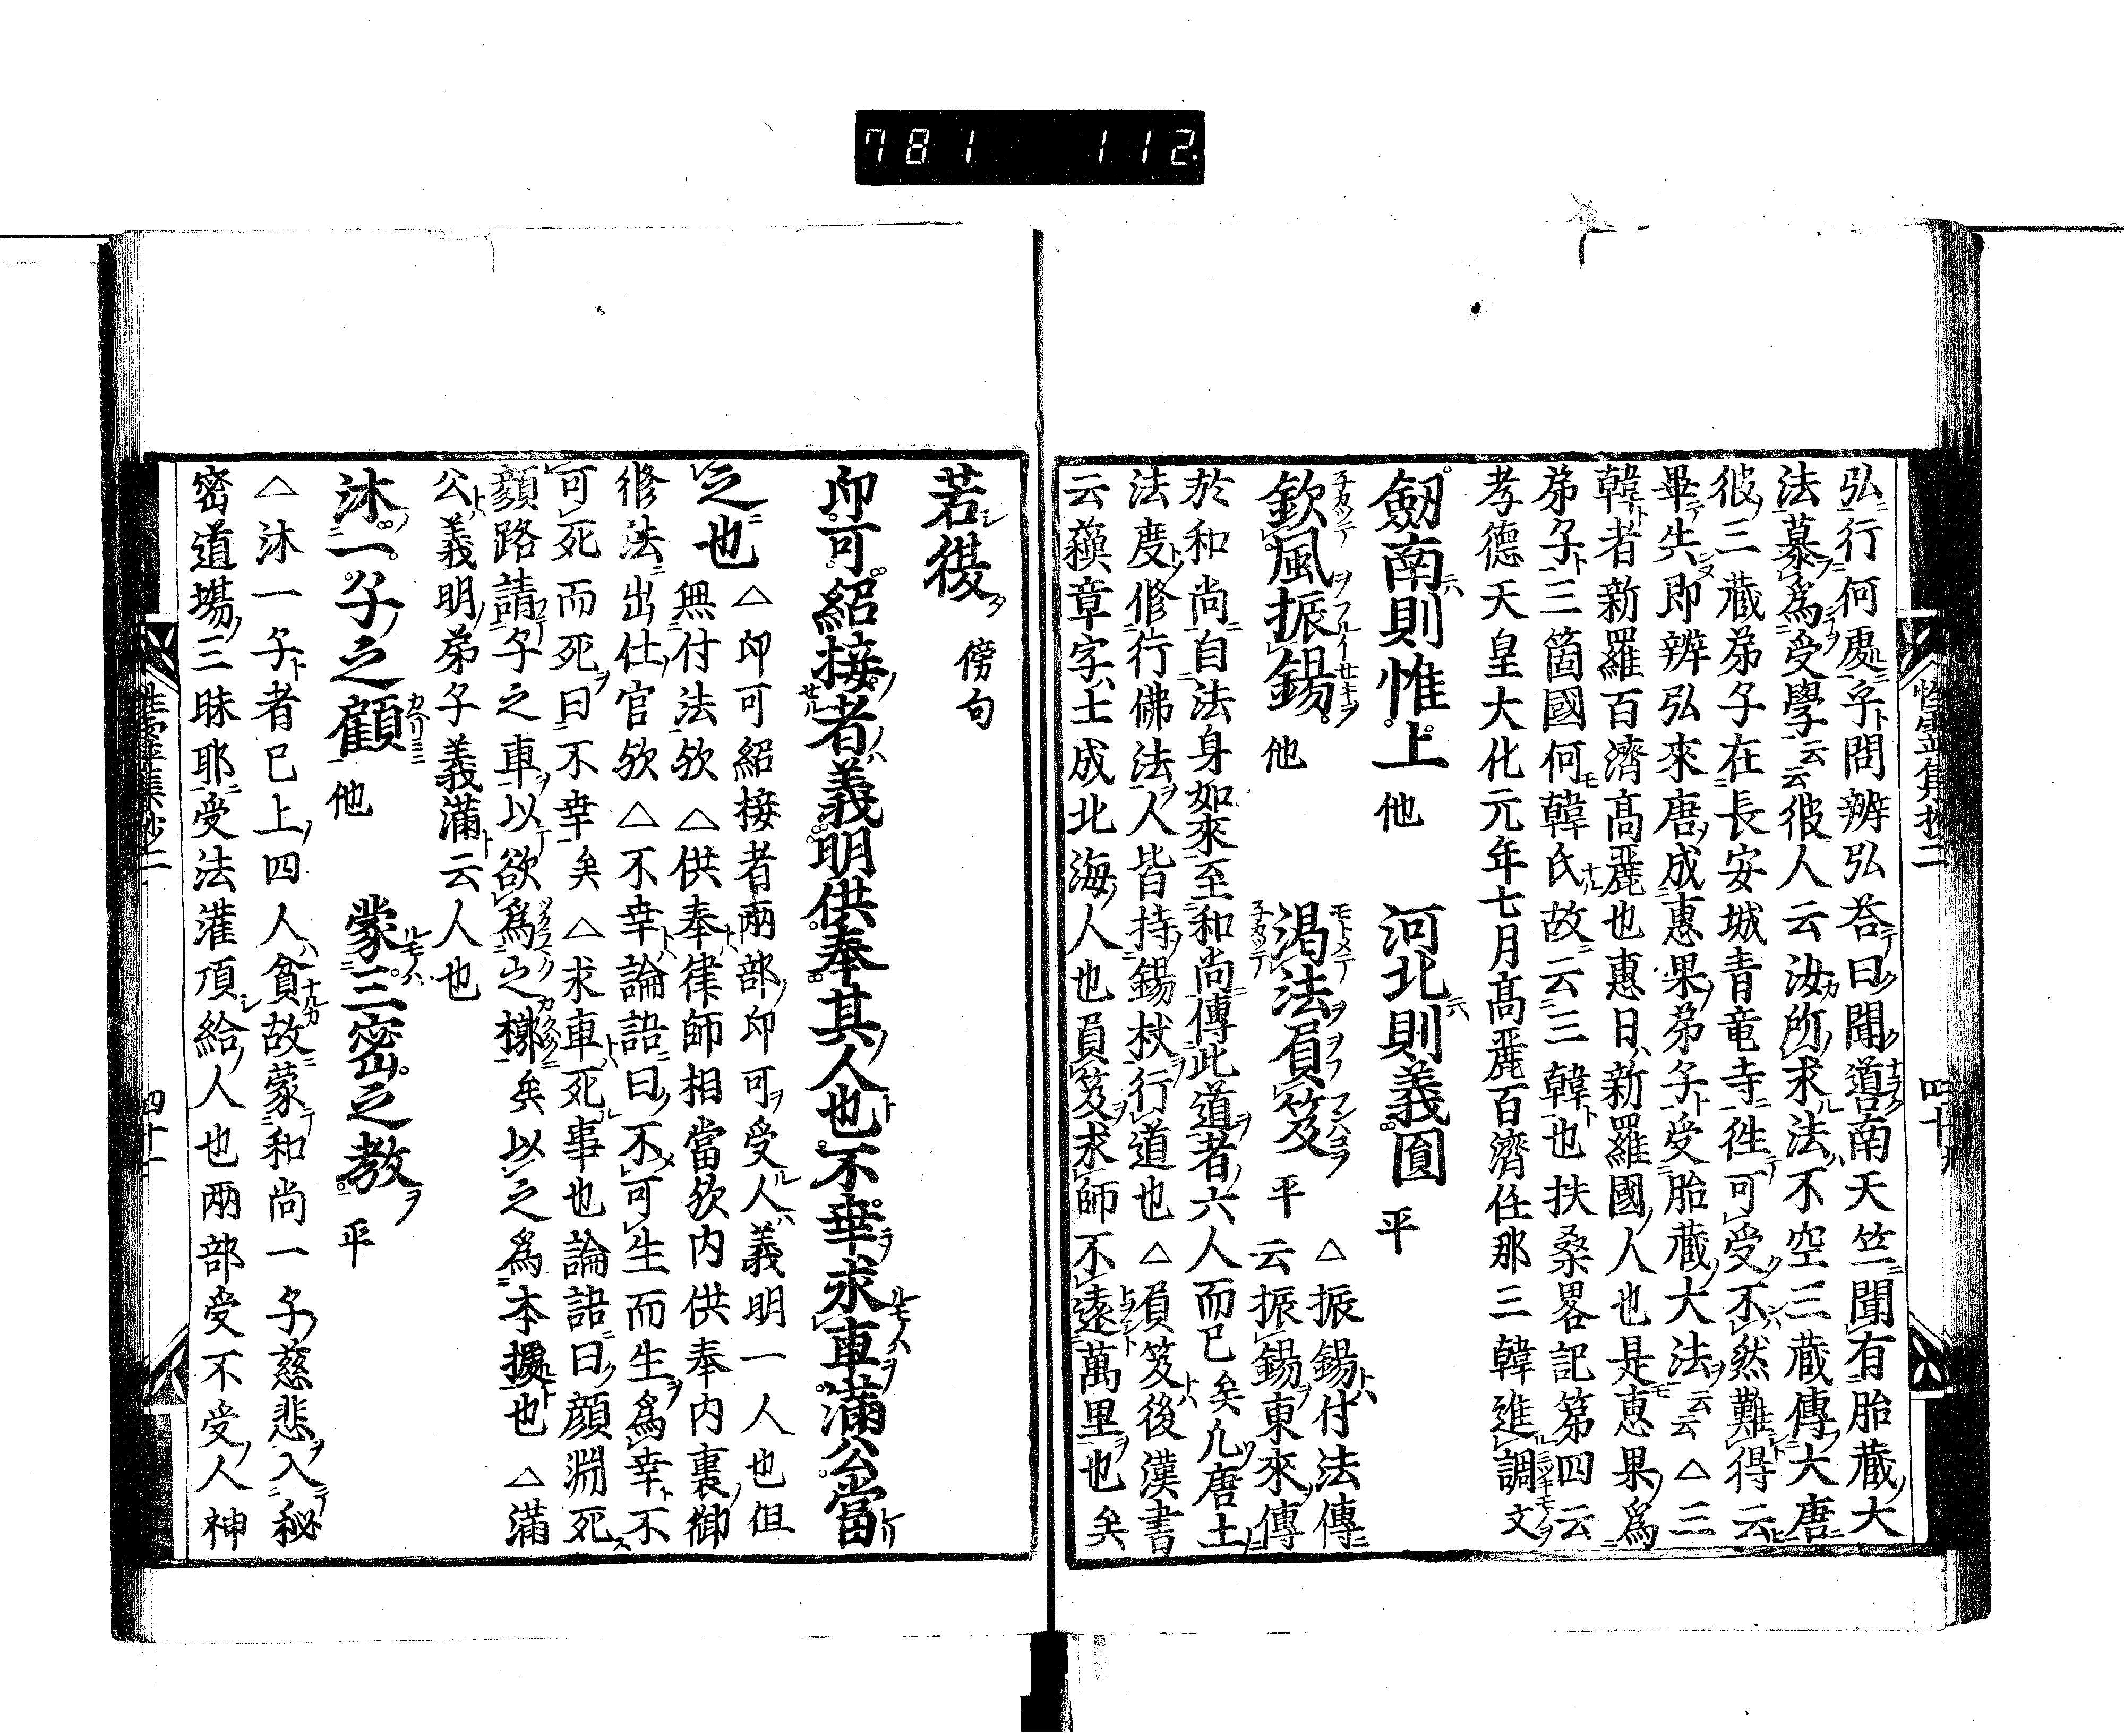 781 112
弘行何處乎問辨弘荅曰聞道南天竺聞有胎藏大
法慕爲受學云云彼人云汝所求法不空三藏傳大唐
彼三藏弟子在長安城青竜寺徃可受不然難得云
畢失即辨弘來唐成惠果弟子受胎藏大法云云△三
韓者新羅百濟髙麗也惠日新羅國人也是惠果爲
弟子三箇國何韓氏故云三韓也扶桑畧記第四云
孝德天皇大化元年七月髙麗百濟任那三韓進調文
劔南則惟上 他 河北則義圓 平
欽風振錫 他 渇法負笈 平 △振錫付法傳
云振錫東來傳
於和尚自法身如來至和尚傳此道者六人而已矣凡唐土
法度修行佛法人皆持錫杖行道也△負笈後漢書
云蘓章字士成北海人也負笈求師不遠萬里也矣
四十
若復 傍句
印可紹接者義明供奉其人也不幸求車滿公當
之也 △印可紹接者兩部印可受人義明一人也但
無付法欤△供奉律師相當欤内供奉内裏御
修法出仕官欤△不幸論語曰不可生而生爲幸不
可死而死曰不幸矣△求車死事也論語曰顔淵死
顔路請子之車以欲爲之槨矣以之爲本據也△滿
公義明弟子義滿云人也
沐一子之顧 他 蒙三密之教 平
△沐一子者已上四人貧故蒙和尚一子慈悲入秘
密道場三昧耶受法灌頂給人也兩部受不受人神
四十一